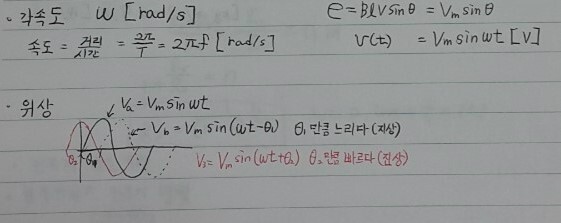 · 각속도 ω [rad/s]
e = Blv sinθ = Vm sinθ
속도 = 거리/시간 = 2π/T = 2πf [rad/s]
v(t) = Vm sin ωt [V]
· 위상
Va = Vm sin ωt
Vb = Vm sin(ωt-θ1) θ1 만큼 느리다 (지상)
θ2 θ1
Vs = Vm sin(ωt+θ2) θ2 만큼 빠르다 (진상)